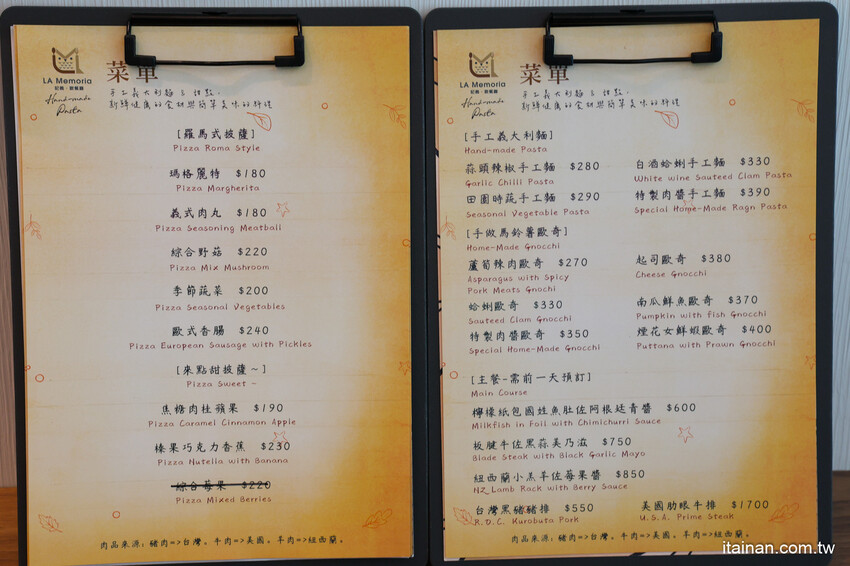 LA Memoria
Hand-made
Pasta
菜單
手工義大利麵&甜點,
新鮮健康的食材與簡單美味的料理
[羅馬式披薩]
Pizza Roma Style
瑪格麗特 $180
Pizza Margherita
義式肉丸 $180
Pizza Seasoning Meatball
綜合野菇 $220
Pizza Mix Mushroom
季節蔬菜 $200
Pizza Seasonal Vegetables
歐式香腸 $240
Pizza European Sausage with Pickles
[來點甜披薩~]
Pizza Sweet ~
焦糖肉桂蘋果 $190
Pizza Caramel Cinnamon Apple
榛果巧克力香蕉 $230
Pizza Nutella with Banana
綜合莓果 $220
Pizza Mixed Berries
肉品來源:豬肉=>台灣。牛肉=>美國。羊肉=>紐西蘭。
LA Memoria
Hand-made
Pasta
菜單
手工義大利麵&甜點,
新鮮健康的食材與簡單美味的料理
[手工義大利麵]
Hand-made Pasta
蒜頭辣椒手工麵 $280
Garlic Chilli Pasta
白酒蛤蜊手工麵 $330
White wine Sauteed Clam Pasta
田園時蔬手工麵 $290
Seasonal Vegetable Pasta
特製肉醬手工麵 $390
Special Home-Made Ragn Pasta
[手做馬鈴薯歐奇]
Home-Made Gnocchi
蘆筍辣肉歐奇 $270
Asparagus with Spicy
Pork Meats Gnochi
起司歐奇 $380
Cheese Gnocchi
蛤蜊歐奇 $330
Sauteed Clam Gnocchi
南瓜鮮魚歐奇 $370
Pumpkin with fish Gnocchi
特製肉醬歐奇 $350
Special Home-Made Gnocchi
煙花女鮮蝦歐奇 $400
Puttana with Prawn Gnocchi
[主餐-需前一天預訂]
Main Course
檸檬紙包國姓魚肚佐阿根廷青醬 $600
Milkfish in Foil with Chimichurri Sauce
板腱牛佐黑蒜美乃滋 $750
Blade Steak with Black Garlic Mayo
紐西蘭小羔羊佐莓果醬 $850
NZ Lamb Rack with Berry Sauce
台灣黑豬豬排 $550
R.O.C. Kurobuta Pork
美國肋眼牛排 $1700
U.S.A. Prime Steak
肉品來源:豬肉=>台灣。牛肉=>美國。羊肉=>紐西蘭。
itainan.com.tw